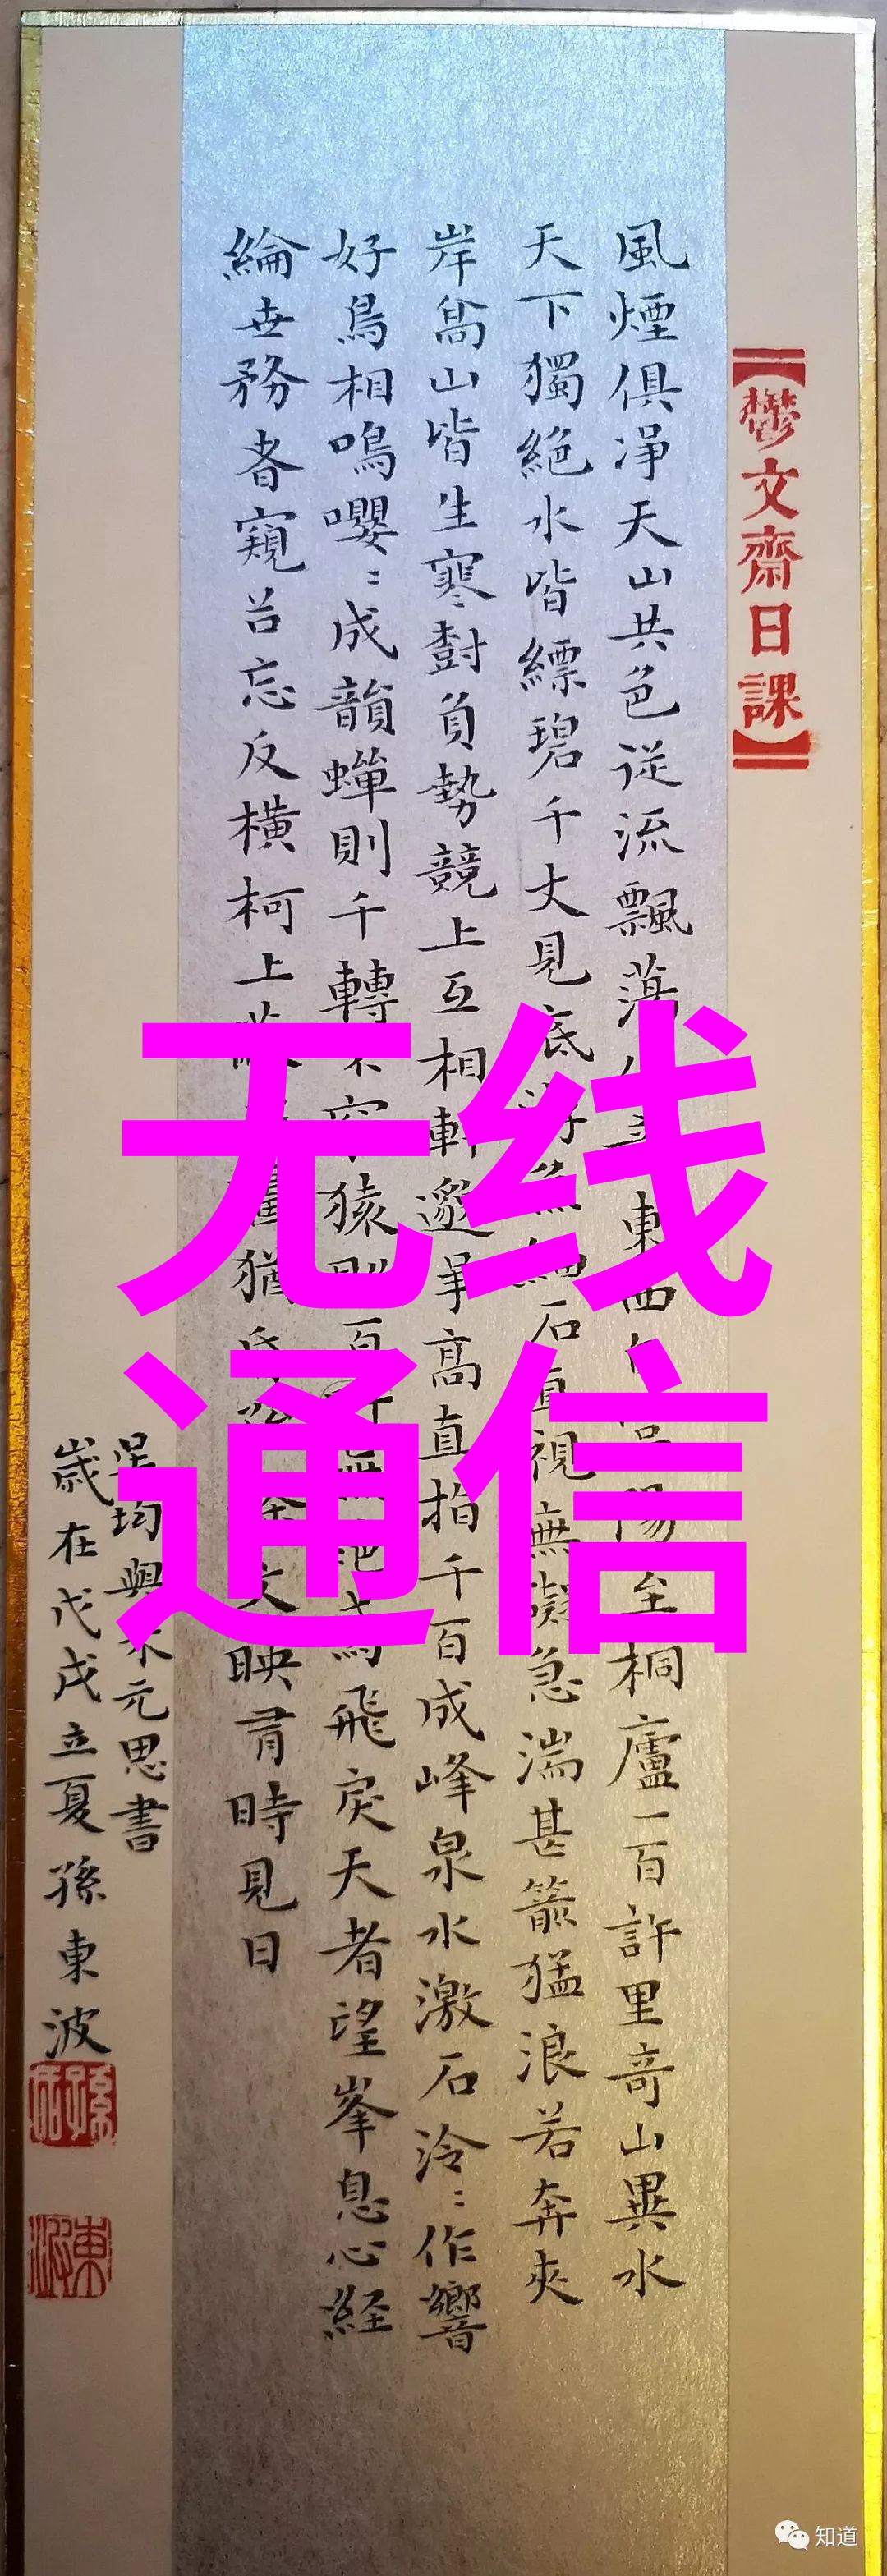 鬱文齋日課
風煙俱淨天山共色從流飄蕩東西陽至桐廬一百許里奇山異水
天下獨絕水皆縹碧千丈見底石直視無礙急湍甚箭猛浪若奔夾
岸高山皆生寒對負勢競上互相軒邈爭高直指千百成峰泉水激石泠〻作響
好鳥相鳴嚶〻成韻蟬則千轉猿則百飛戾天者望峯息心経
綸世務者窺谷忘反橫柯上猶映有時見日
吳均與朱元思書
歲在戊戌立夏孫東波
无线
通信
知道